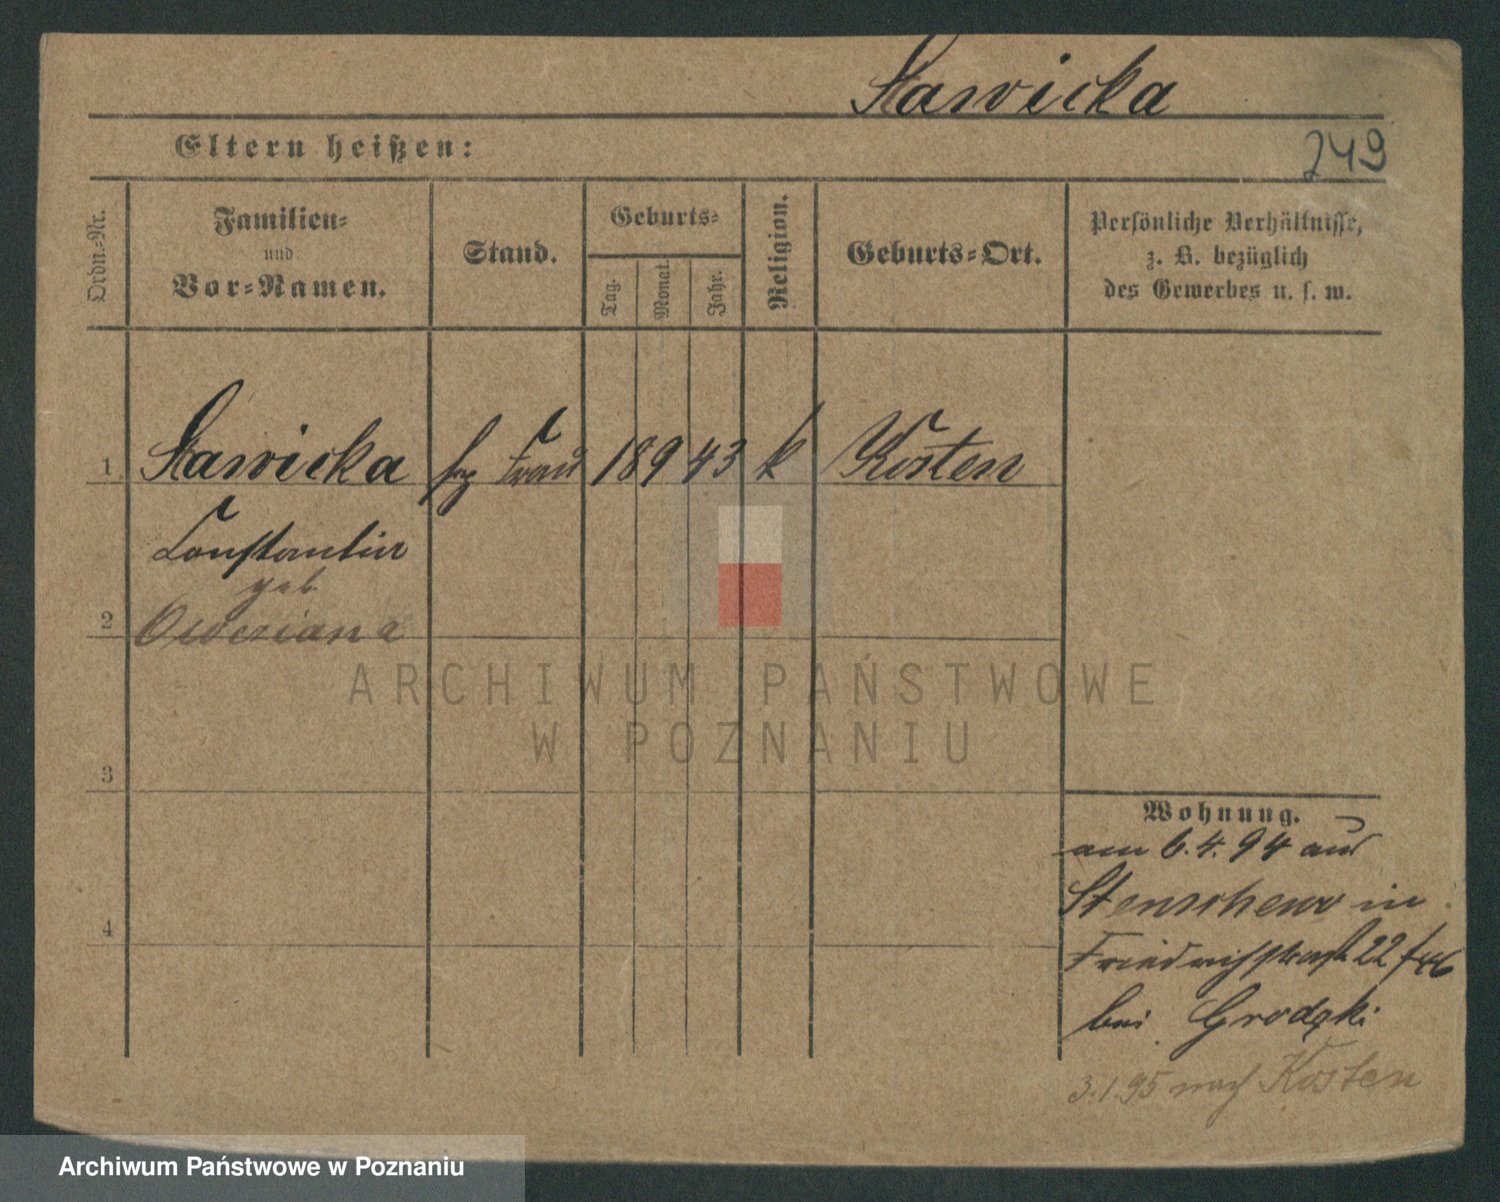 Stawicka
Eltern heißen:
249
Ordn.-Nr.
Familien-
und
Vor-Namen.
Stand.
Geburts-
Tag.
Monat.
Jahr.
Religion.
Geburts-Ort.
Persönliche Verhältnisse,
z. B. bezüglich
des Gewerbes u. s. w.
1 Stawicka Frau 18 9 43 k Kosten
Constantia
geb.
2
3
4
Wohnung.
am 6.4.94 aus
Stenschewo in
Friedrichstraße 22
bei Grodzki
3.1.95 nach Kosten
ARCHIWUM PAŃSTWOWE
W POZNANIU
Archiwum Państwowe w Poznaniu